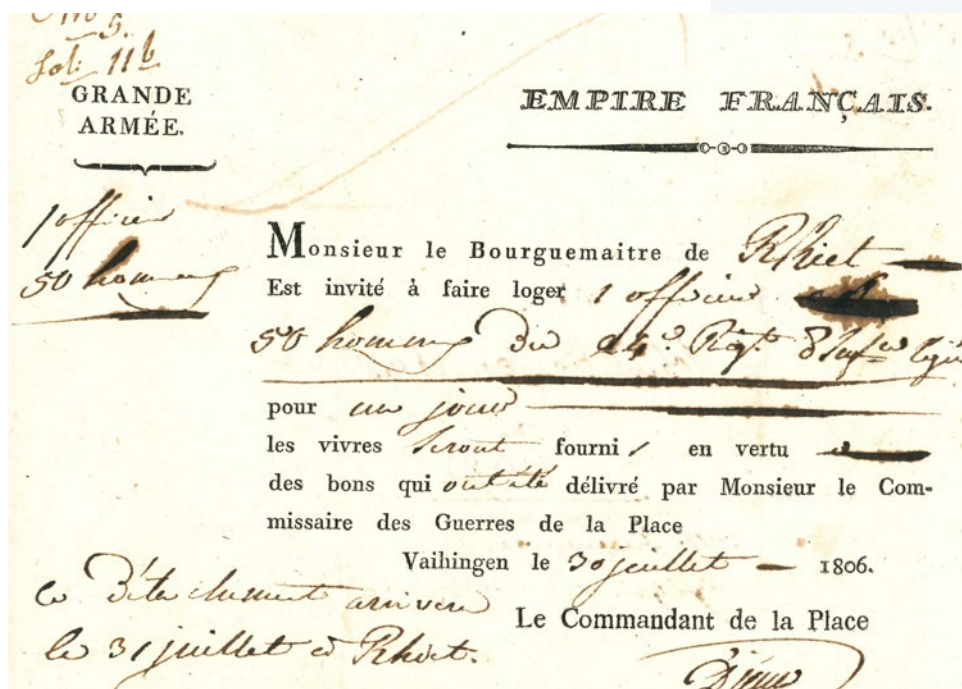 fol: 11b
GRANDE
ARMÉE.
EMPIRE FRANÇAIS.
1 officier
50 hommes
Monsieur le Bourguemaitre de Rhiet
Est invité à faire loger 1 officier
50 hommes du 24e. Regt. d'Infie legère
pour un jour
les vivres seront fournis en vertu
des bons qui ont été délivré par Monsieur le Com-
missaire des Guerres de la Place
Vaihingen le 30 juillet 1806.
Le Commandant de la Place
ce Détachement arrivera
le 31 juillet à Rhiet.